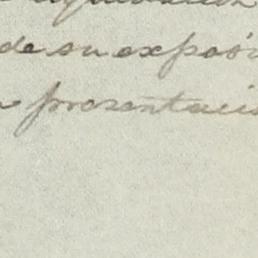 de su exposi
presentaci